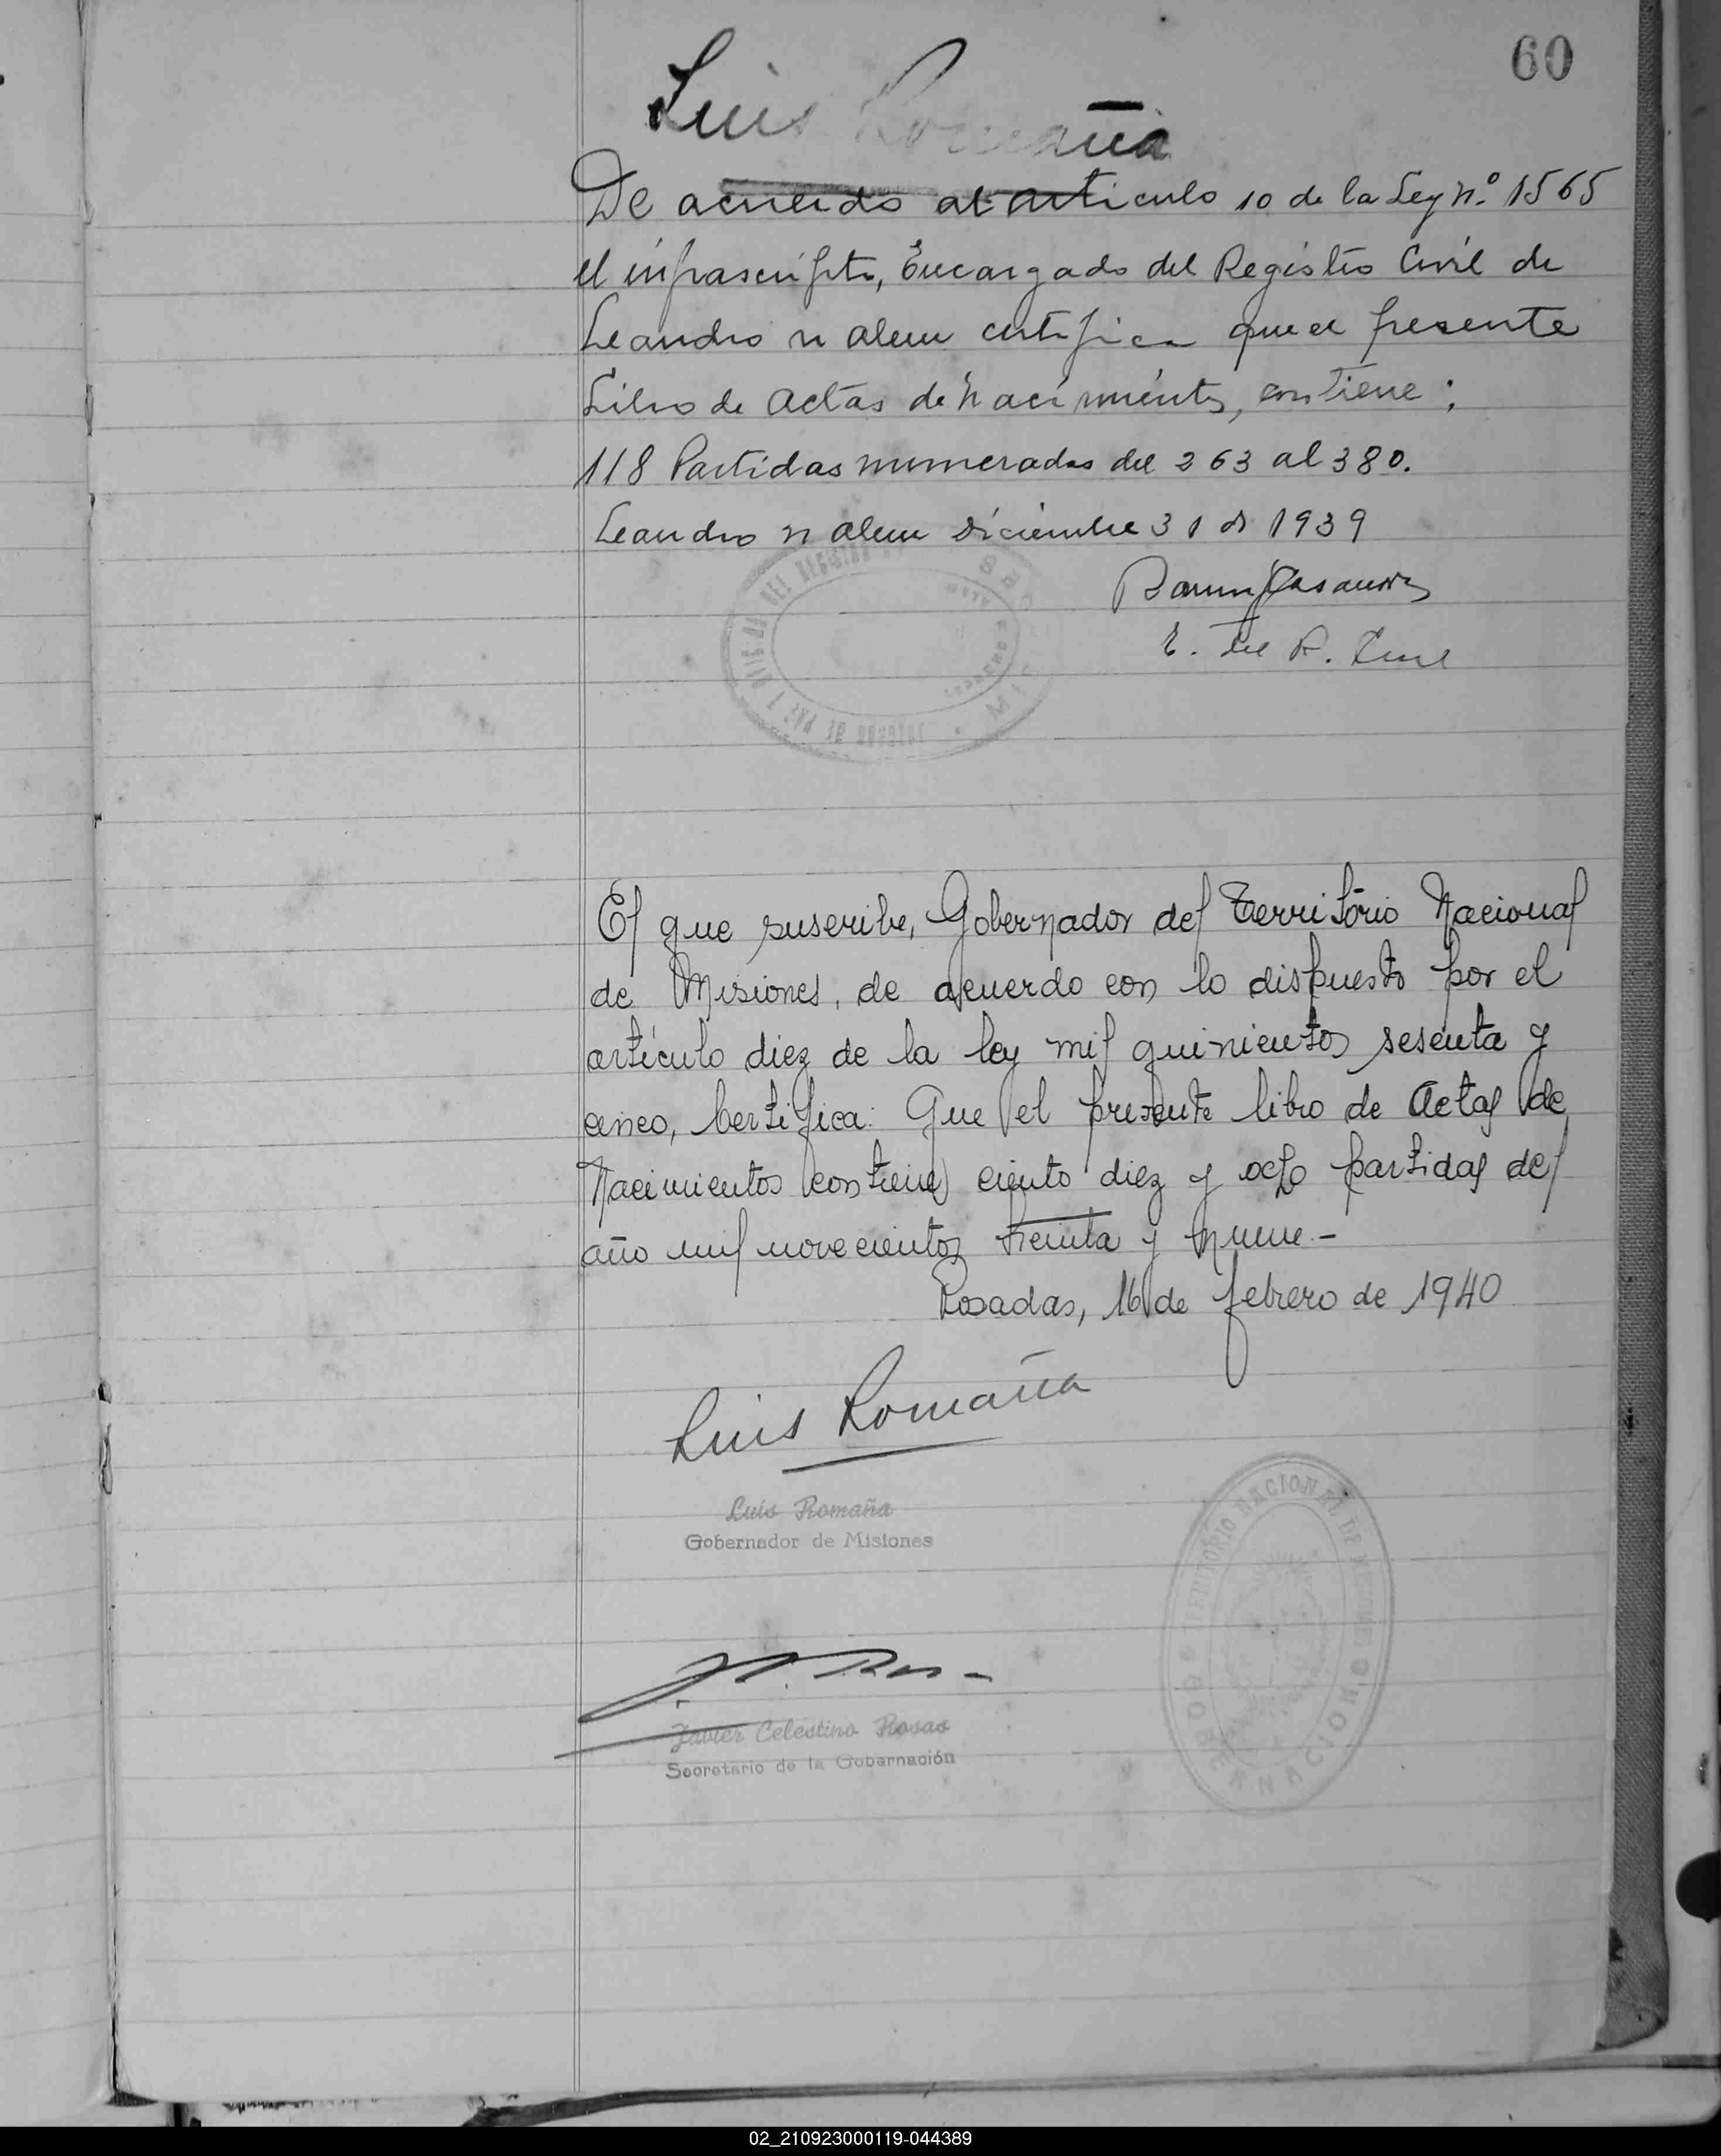 60
Luis Romaña
De acuerdo al articulo 10 de la Ley nº 1565
el infrascripto, Encargado del Registro Civil de
Leandro n alem certifica que el presente
Libro de actas de nacimientos, contiene:
118 Partidas numeradas del 263 al 380.
Leandro n alem Diciembre 31 de 1939
E. del R. Civil
El que suscribe, Gobernador del Territorio Nacional
de Misiones, de acuerdo con lo dispuesto por el
artículo diez de la ley mil quinientos sesenta y
cinco, Certifica: Que el presente libro de Actas de
Nacimientos contiene ciento diez y ocho partidas del
año mil novecientos treinta y nueve.-
Posadas, 16 de febrero de 1940
Luis Romaña
Luis Romaña
Gobernador de Misiones
TERRITORIO NACIONAL DE MISIONES
GOBERNACION
Javier Celestino Rosas
Secretario de la Gobernación
02_210923000119-044389